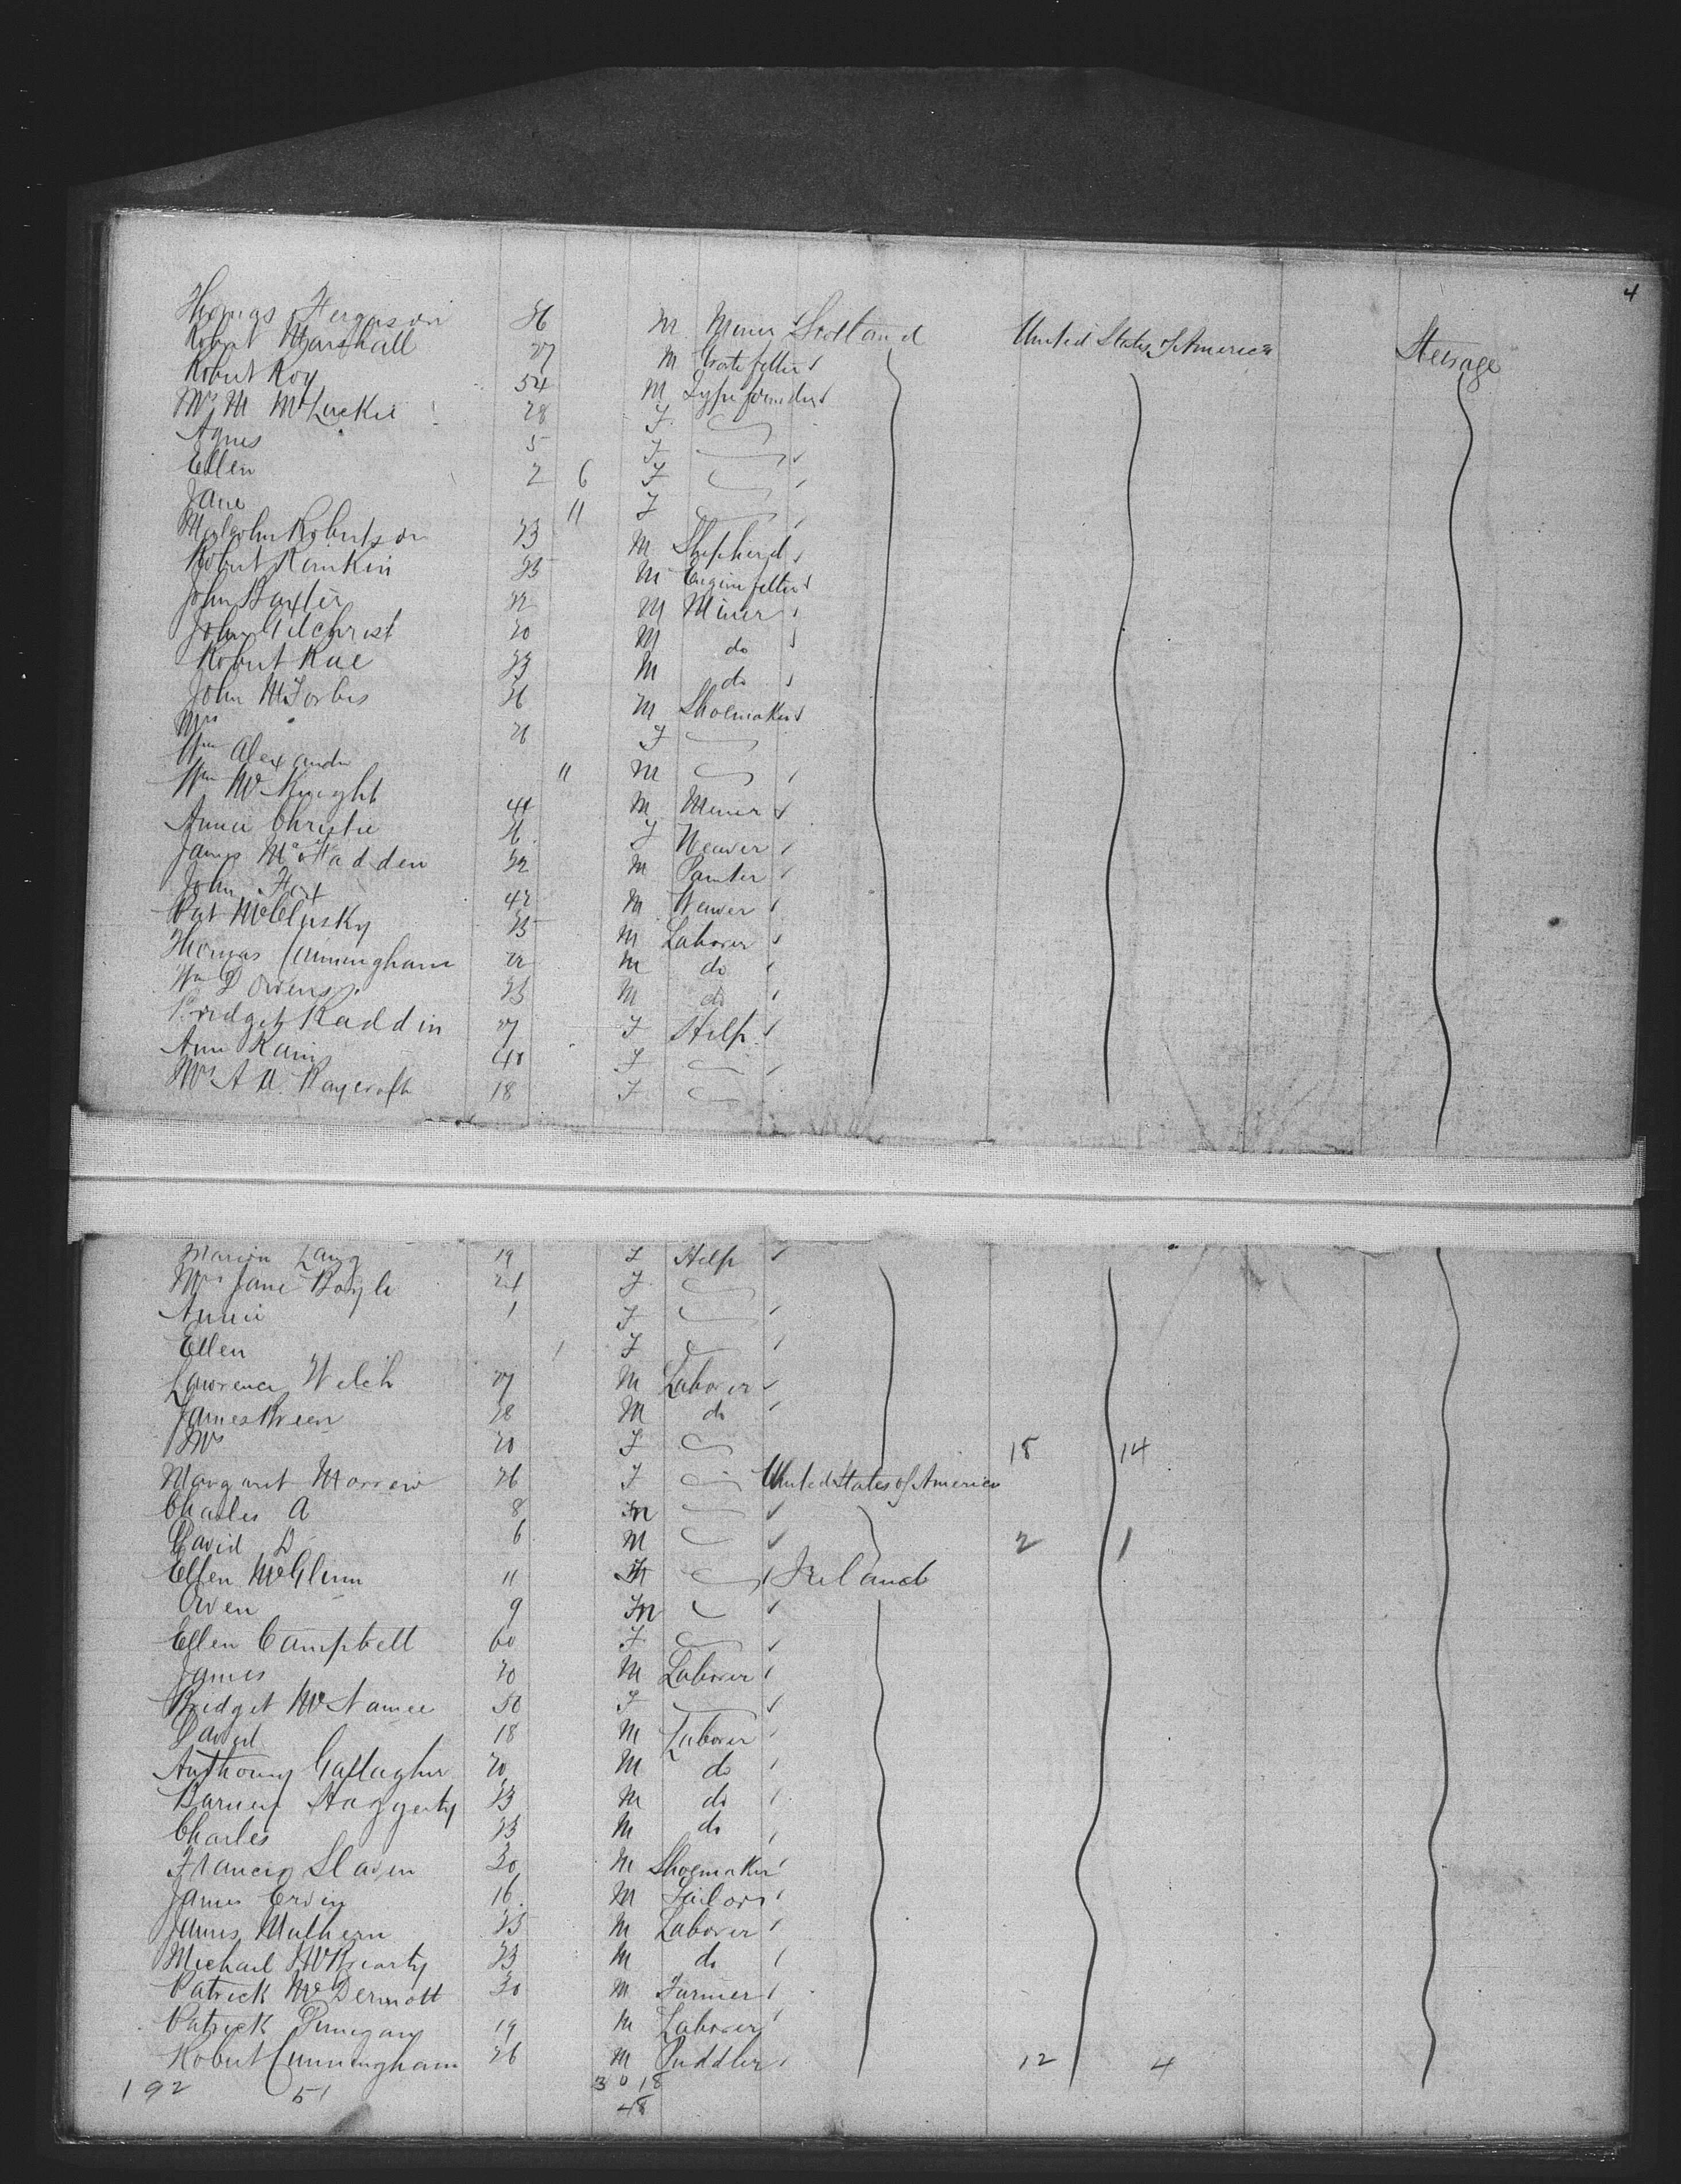 4
Thomas Ferguson 26 M Miner Scotland United States of America Steerage
Robert Marshall 27 M Gratefitter
Robert Roy 54 M Typefounder
Mrs M McLuckie 28 F
Agnes 5 F
Ellen 2 6 F
Jane 11 F
Malcolm Robertson 23 M Shepherd
Robert Rankin 25 M Enginefitter
John Baxter 22 M Miner
John Gilchrist 20 M do
Robert Rae 23 M do
John McForbes 26 M Shoemaker
Mrs 21 F
Wm Alexander 11 M
Wm McKnight 41 M Miner
Annie Christie 26 F Weaver
James McFadden 22 M Painter
John Fox 42 M Weaver
Pat McClusky 25 M Laborer
Thomas Cunningham 22 M do
Wm D Owens 23 M do
Bridget Raddin 27 F Help
Ann Kain 40 F
Mrs A M Raycroft 18 F
Marion Lang 19 F Help
Mrs Jane Boyle 24 F
Annie 1 F
Ellen 1 F
Lawrence Welch 27 M Laborer
James Breen 28 M do
Mrs 20 F 18 14
Margaret Morrow 26 F United States of America
Charles A 8 M
David D 6 M 2 1
Ellen McGlinn 11 Ireland
Owen 9 M
Ellen Campbell 60 F
James 20 M Laborer
Bridget McNamee 50 F
David 18 M Laborer
Anthony Gallagher 20 M do
Barney Haggerty 23 M do
Charles 23 M do
Francis Slaven 30 M Shoemaker
James Ervin 16 M Sailor
James Mulhern 25 M Laborer
Michael McBrearty 23 M do
Patrick McDermott 30 M Farmer
Patrick Finnegan 19 M Laborer
Robert Cunningham 26 M Puddler 12 4
192 51 30 18
48